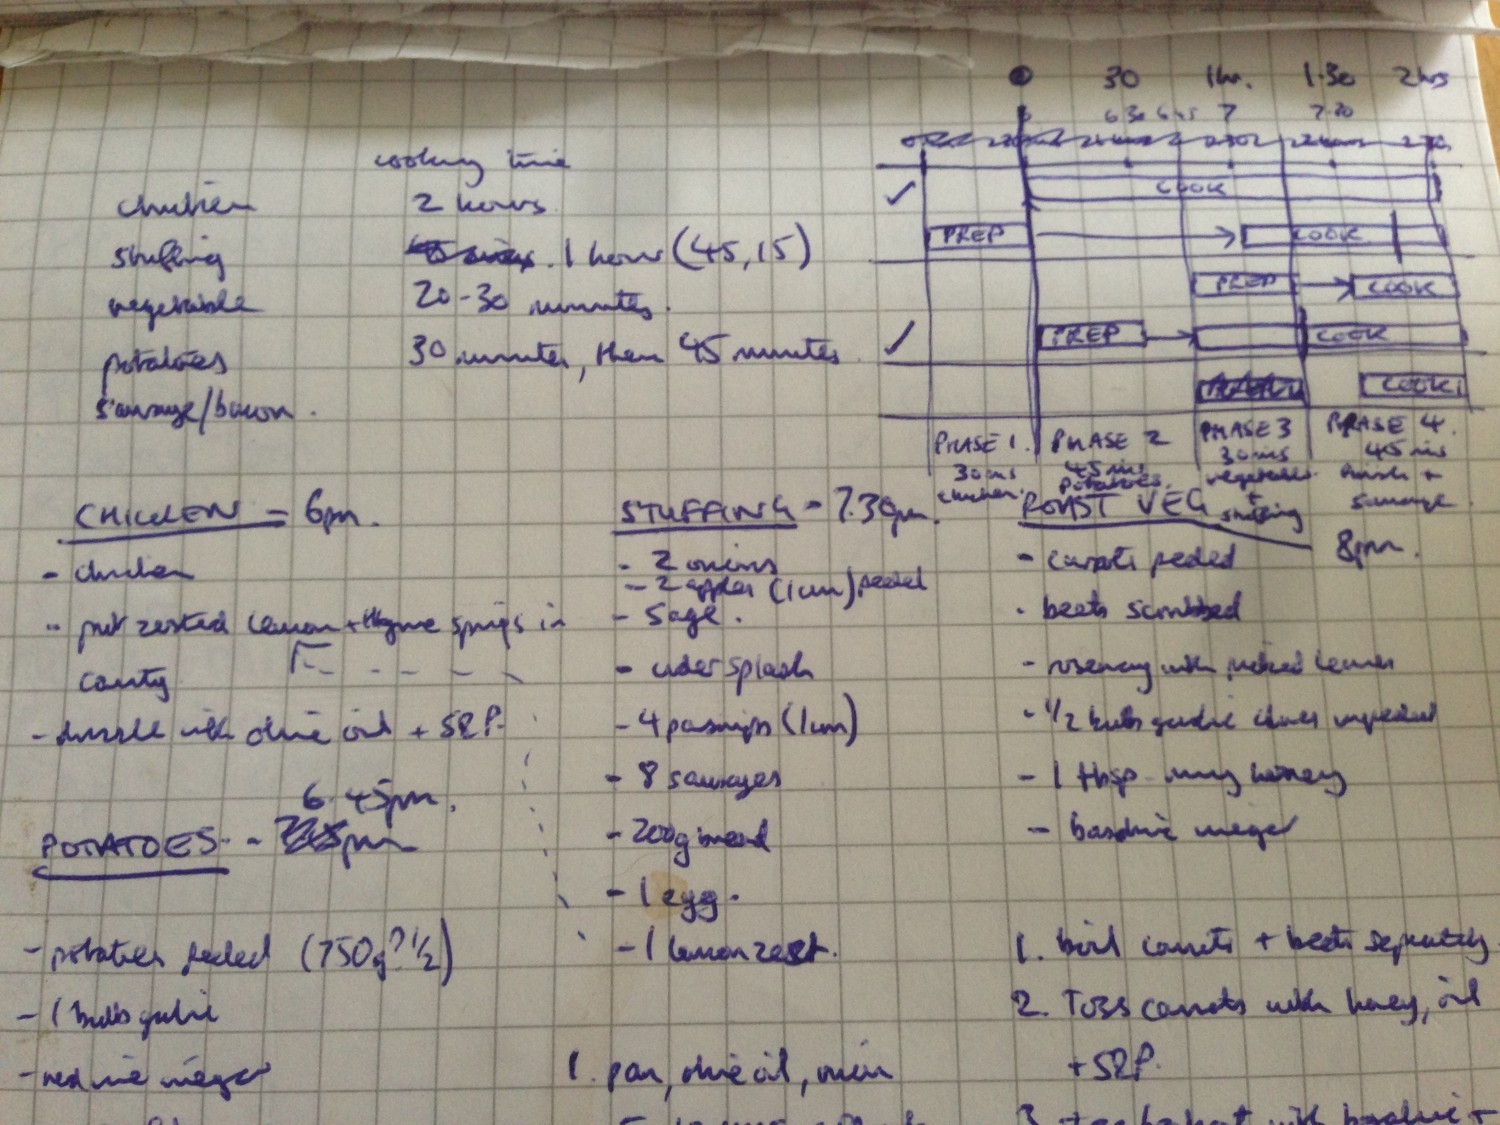 0 30 1hr. 1.30 2hrs
6 6 30 6 45 7 7.30
cooking time
chicken 2 hours
stuffing 1 hour (45, 15)
vegetable 20-30 minutes.
potatoes 30 minutes, then 45 minutes
sausage/bacon.
✓ COOK
PREP COOK
PREP COOK
✓ PREP COOK
COOK
PHASE 1. 30 mins chicken.
PHASE 2 45 mins potatoes.
PHASE 3 30 mins vegetables + stuffing
PHASE 4. 45 mins finish + sausage.
8pm.
CHICKEN - 6pm.
- chicken
- put zested lemon + thyme sprigs in
cavity
- drizzle with olive oil + S&P.
6.45pm.
POTATOES - pm
- potatoes peeled (750g? 1/2)
- 1 bulb garlic
- red wine vinegar
STUFFING - 7.30pm.
- 2 onions
- 2 apples (1cm) peeled
- sage.
- cider splash
- 4 parsnips (1cm)
- 8 sausages
- 200g bread
- 1 egg.
- 1 lemon zest.
1. pan, olive oil, onion
ROAST VEG
- carrots peeled
- beets scrubbed
- rosemary with picked leaves
- 1/2 bulb garlic cloves unpeeled
- 1 tbsp runny honey
- balsamic vinegar
1. boil carrots + beets seperately
2. Toss carrots with honey, oil
+ S&P.
3. with